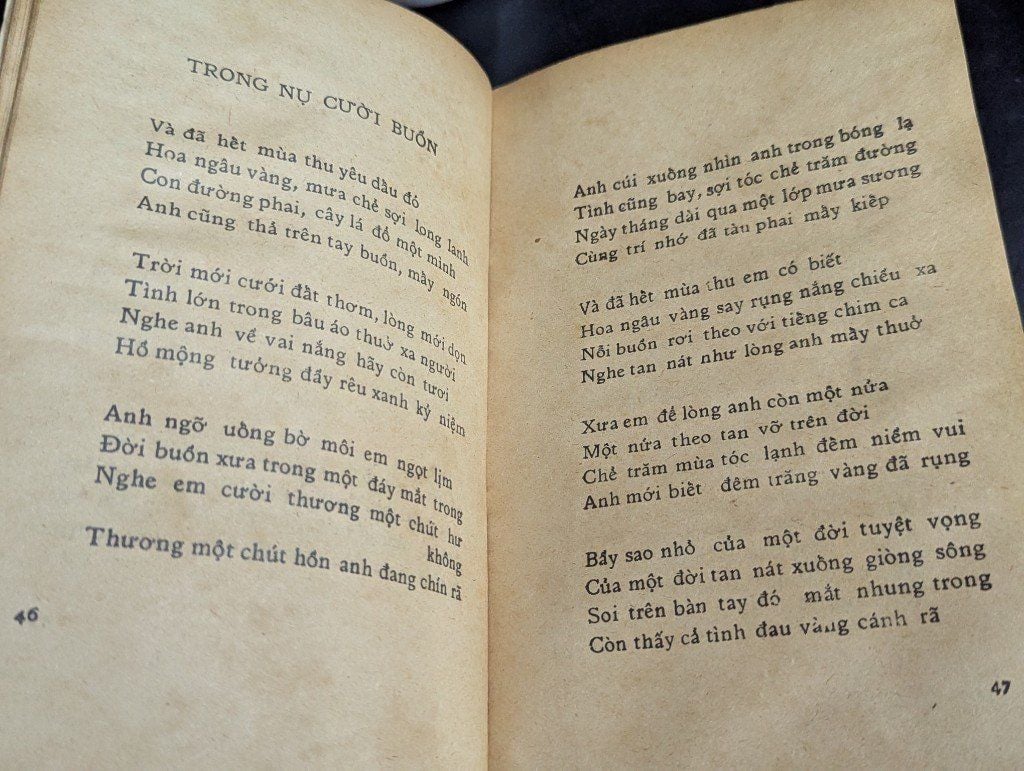 TRONG NỤ CƯỜI BUỒN
Và đã hết mùa thu yêu dầu đó
Hoa ngâu vàng, mưa chẻ sợi long lanh
Con đường phai, cây lá đổ một mình
Anh cũng thả trên tay buồn, mấy ngón
Trời mới cưới đất thơm, lòng mới dọn
Tình lớn trong bâu áo thuở xa người
Nghe anh về vai nắng hãy còn tươi
Hồ mộng tưởng đầy rêu xanh kỷ niệm
Anh ngỡ uống bờ môi em ngọt lịm
Đời buồn xưa trong một đáy mắt trong
Nghe em cười thương một chút hư
không
Thương một chút hồn anh đang chín rã
46
Anh cúi xuống nhìn anh trong bóng lạ
Tình cũng bay, sợi tóc chẻ trăm đường
Ngày tháng dài qua một lớp mưa sương
Cùng trí nhớ đã tàu phai mấy kiếp
Và đã hết mùa thu em có biết
Hoa ngâu vàng say rụng nắng chiều xa
Nỗi buồn rơi theo với tiếng chim ca
Nghe tan nát như lòng anh mấy thuở
Xưa em để lòng anh còn một nửa
Một nứa theo tan vỡ trên đời
Chẻ trăm mùa tóc lạnh đếm niềm vui
Anh mới biết đêm trăng vàng đã rụng
Bầy sao nhỏ của một đời tuyệt vọng
Của một đời tan nát xuống giòng sông
Soi trên bàn tay đó mắt nhung trong
Còn thấy cả tình đau vàng cánh rã
47